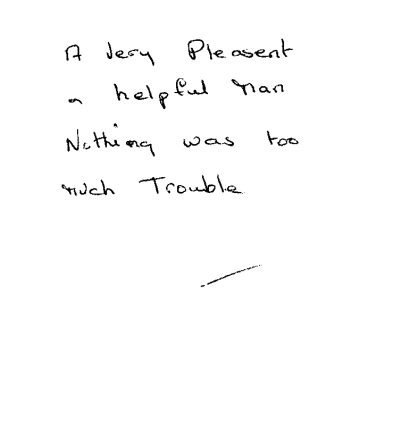 A Very Pleasent
n helpful Man
Nothing was too
much Trouble